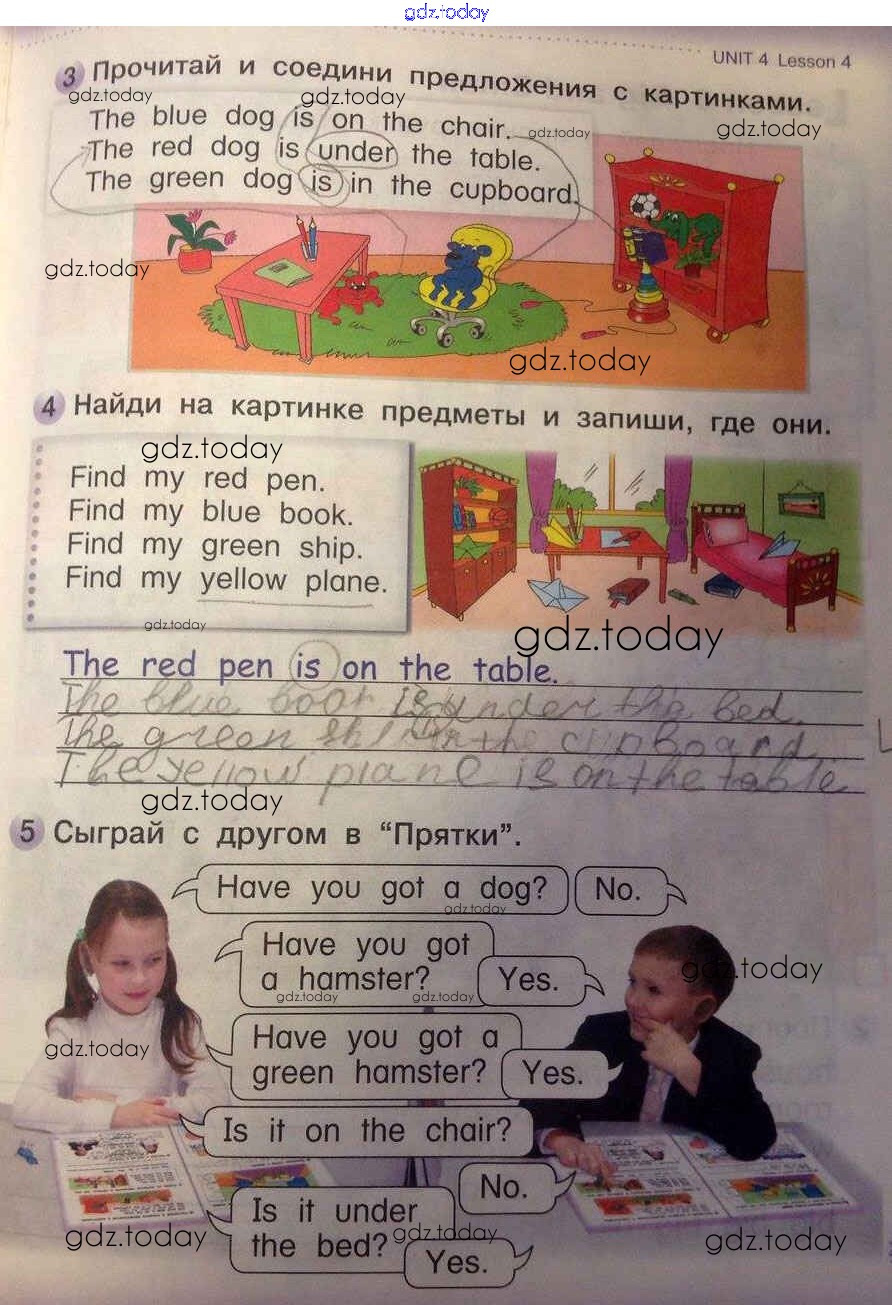 gdz.today
UNIT 4 Lesson 4
3 Прочитай и соедини предложения с картинками.
gdz.today gdz.today
The blue dog is on the chair.
gdz.today gdz.today
The red dog is under the table.
The green dog is in the cupboard.
gdz.today
gdz.today
4 Найди на картинке предметы и запиши, где они.
gdz.today
Find my red pen.
Find my blue book.
Find my green ship.
Find my yellow plane.
gdz.today gdz.today
The red pen is on the table.
The blue book is under the bed.
The green ship in the cupboard
The yellow plane is on the table
gdz.today
5 Сыграй с другом в “Прятки”.
Have you got a dog? No.
gdz.today
Have you got
a hamster? Yes.
gdz.today
gdz.today gdz.today
Have you got a
green hamster? Yes.
gdz.today
Is it on the chair?
No.
Is it under
the bed? Yes.
gdz.today gdz.today gdz.today